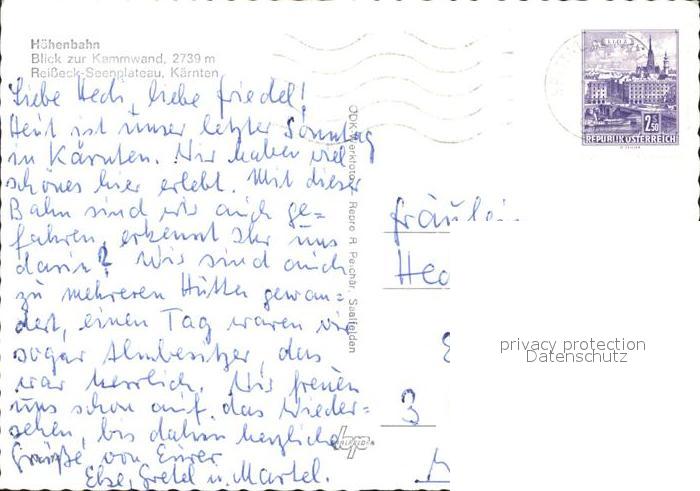 Höhenbahn
Blick zur Kammwand, 2739 m
Reißeck-Seenplateau, Kärnten
Liebe Hedi, liebe Friedel!
Heut ist unser letzter Sonntag
in Kärnten. Wir haben viel
schönes hier erlebt. Mit dieser
Bahn sind wir auch ge=
fahren, erkennt Ihr uns
darin? Wir sind auch
zu mehreren Hütten gewan=
dert, einen Tag waren wir
sogar Almbesitzer, das
war herrlich. Wir freuen
uns schon auf das Wieder=
sehen, bis dahin herzliche
Grüße von Eurer
Else, Gretel u. Martel.
Repro R. Pechár, Saalfelden
2.50
REPUBLIK ÖSTERREICH
Fräulein
Hed
3
privacy protection
Datenschutz